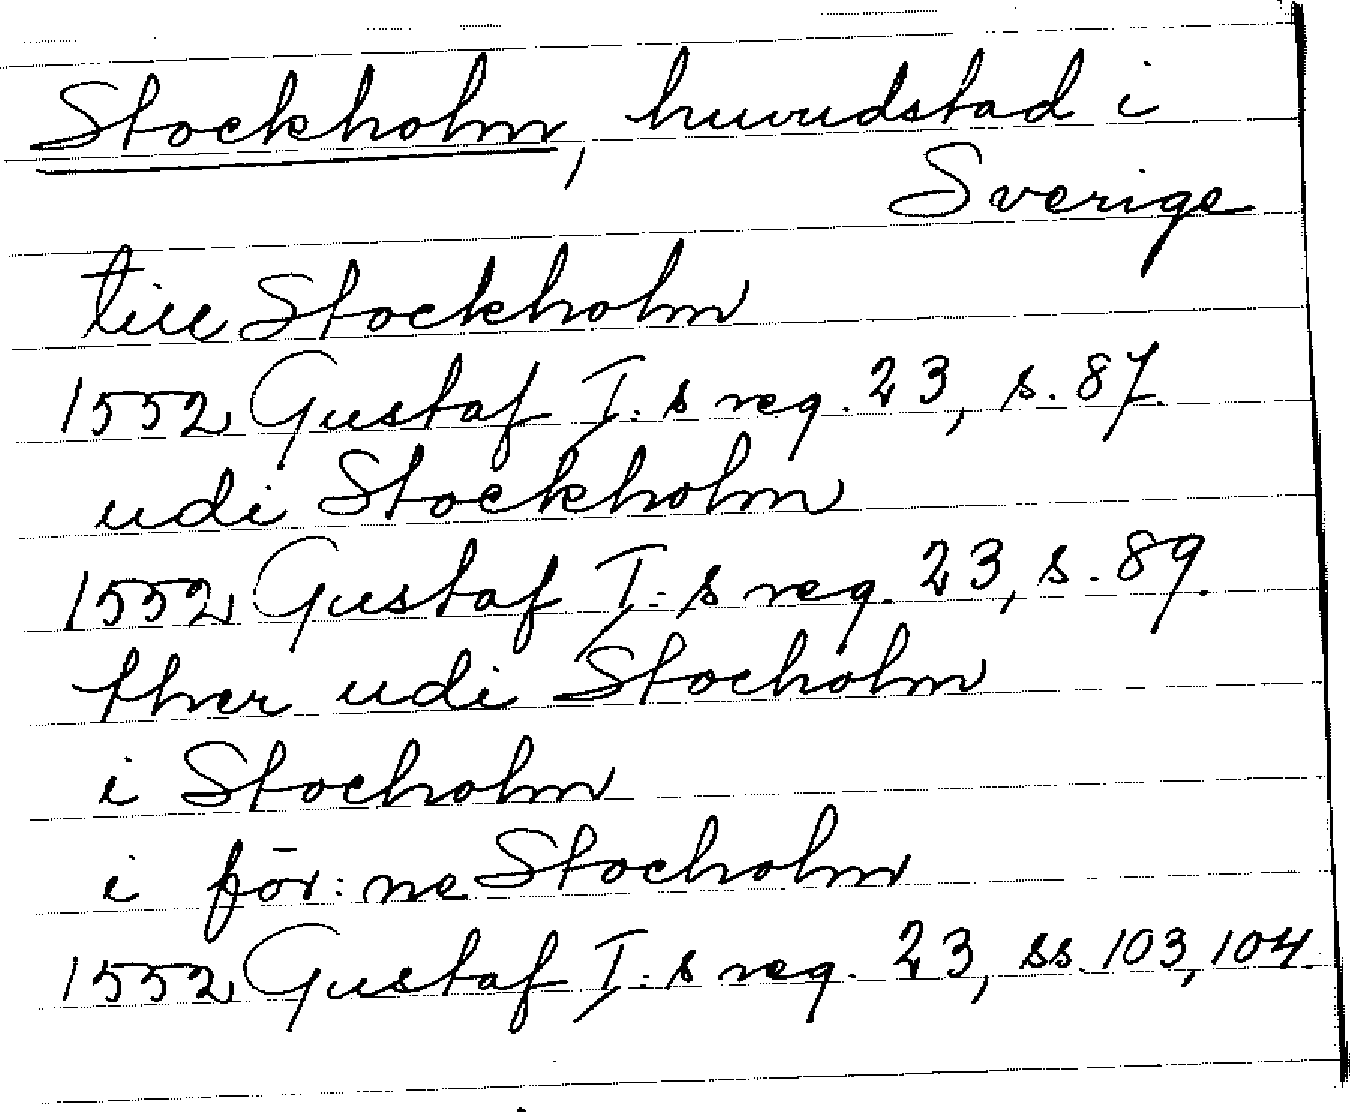 Stockholm, huvudstad i
Sverige
till Stockholm
1552 Gustaf I:s reg. 23, s. 87.
udi Stockholm
1552 Gustaf I:s reg. 23, s. 89.
ther udi Stocholm
i Stocholm
i för:ne Stocholm
1552 Gustaf I:s reg. 23, ss. 103, 104.